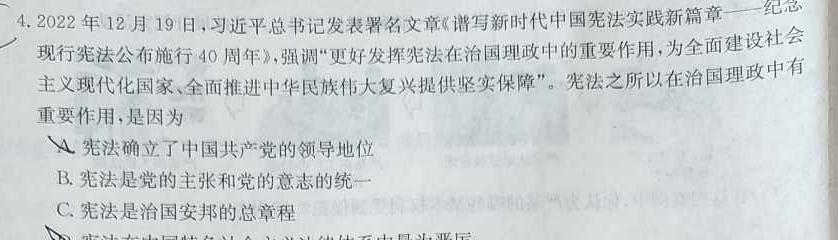 4. 2022 年 12 月 19 日,习近平总书记发表署名文章《谱写新时代中国宪法实践新篇章——纪念
现行宪法公布施行 40 周年》,强调“更好发挥宪法在治国理政中的重要作用,为全面建设社会
主义现代化国家、全面推进中华民族伟大复兴提供坚实保障”。宪法之所以在治国理政中有
重要作用,是因为
A. 宪法确立了中国共产党的领导地位
B. 宪法是党的主张和党的意志的统一
C. 宪法是治国安邦的总章程